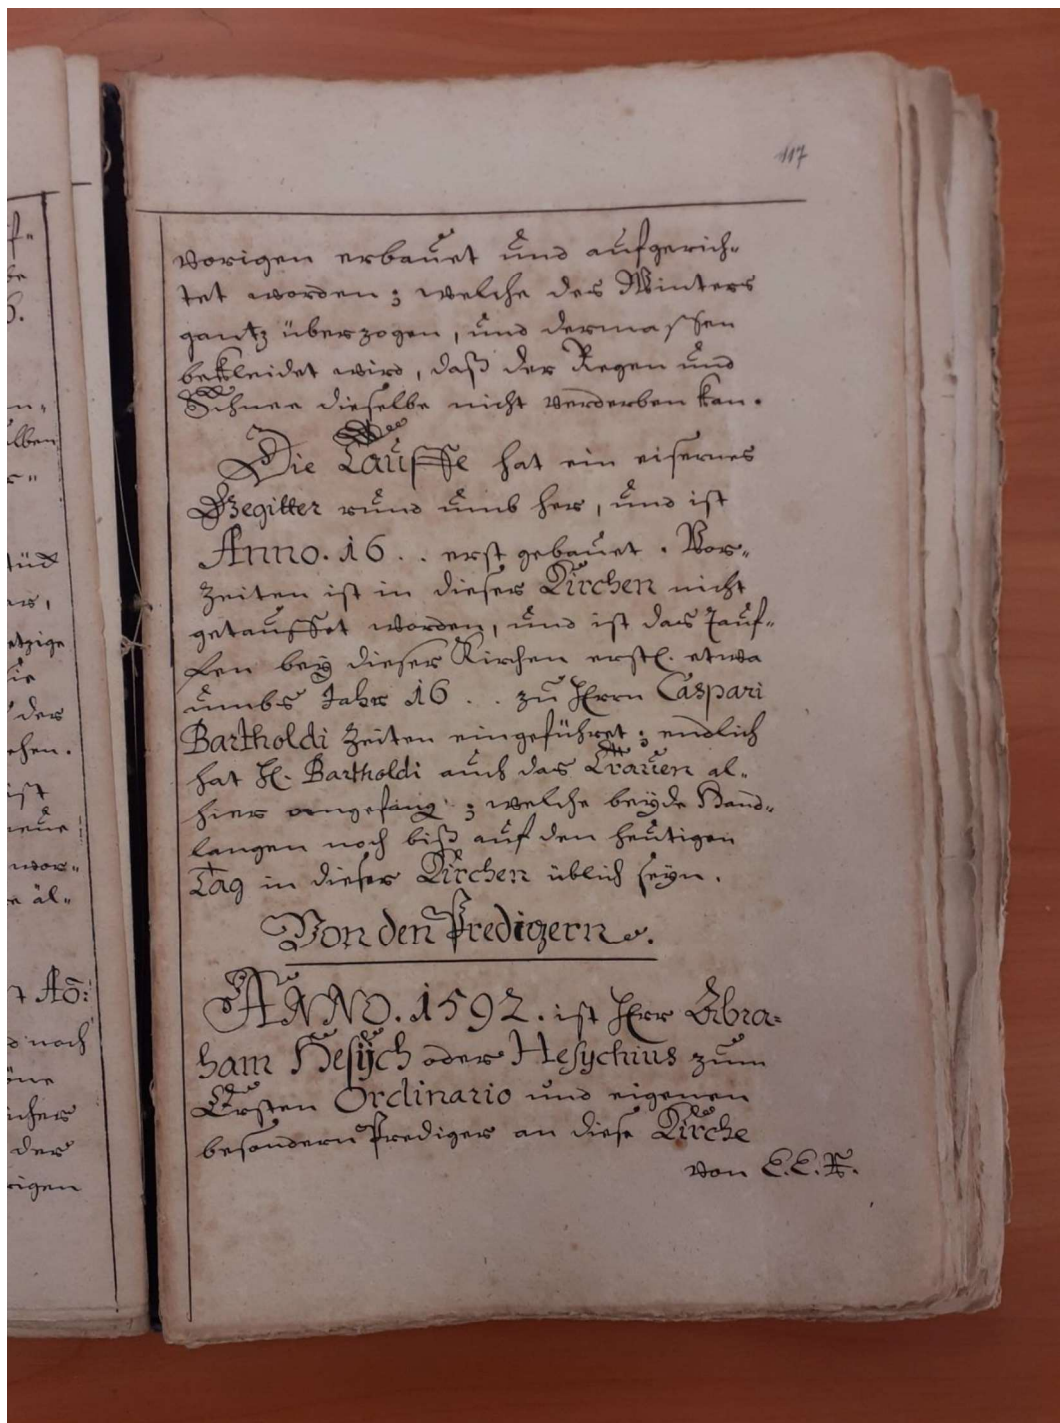 117
vorigen erbauet und aufgerich-
tet worden; welche des Winters
gantz überzogen, und dermassen
bekleidet wird, daß der Regen und
Schnee dieselbe nicht verderben kan.
Die Tauffe hat ein eisernes
Gegitter rund umb her, und ist
Anno. 16 . . erst gebauet. Vor-
zeiten ist in dieser Kirchen nicht
getauffet worden, und ist das Tauf-
fen bey dieser Kirchen erstl. etwa
umbs Jahr 16 . . zu Herrn Caspari
Bartholdi Zeiten eingeführet; endlich
hat H. Bartholdi auch das Trauen al-
hier angefang; welche beyde Hand-
langen noch biß auf den heutigen
Tag in dieser Kirchen üblich seyn.
Von den Predigern.
ANNO. 1592. ist Herr Abra-
ham Hesÿch oder Hesychius zum
Ersten Ordinario und eigenen
besondern Prediger an diese Kirche
von E. E. R.